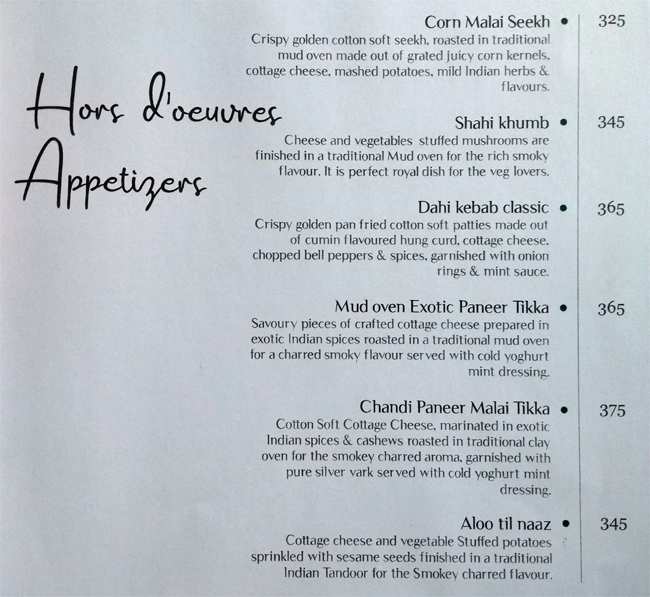 Hors d'oeuvres
Appetizers
Corn Malai Seekh • 325
Crispy golden cotton soft seekh, roasted in traditional
mud oven made out of grated juicy corn kernels,
cottage cheese, mashed potatoes, mild Indian herbs &
flavours.
Shahi khumb • 345
Cheese and vegetables stuffed mushrooms are
finished in a traditional Mud oven for the rich smoky
flavour. It is perfect royal dish for the veg lovers.
Dahi kebab classic • 365
Crispy golden pan fried cotton soft patties made out
of cumin flavoured hung curd, cottage cheese,
chopped bell peppers & spices, garnished with onion
rings & mint sauce.
Mud oven Exotic Paneer Tikka • 365
Savoury pieces of crafted cottage cheese prepared in
exotic Indian spices roasted in a traditional mud oven
for a charred smoky flavour served with cold yoghurt
mint dressing.
Chandi Paneer Malai Tikka • 375
Cotton Soft Cottage Cheese, marinated in exotic
Indian spices & cashews roasted in traditional clay
oven for the smokey charred aroma, garnished with
pure silver vark served with cold yoghurt mint
dressing.
Aloo til naaz • 345
Cottage cheese and vegetable Stuffed potatoes
sprinkled with sesame seeds finished in a traditional
Indian Tandoor for the Smokey charred flavour.